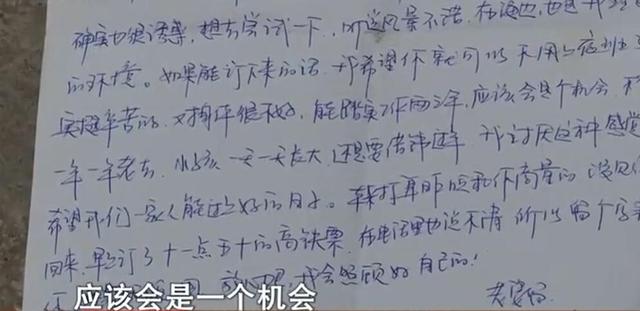 确实也很诱惑，想去尝试一下，听说风景不错，在海边，也是
的环境。如果能订下来的话，我希望你就可以不用上夜班
实挺辛苦的，又挣得很不好，能踏实工作两三年，应该会是个机会，不
一年一年老去，小孩一天一天长大，还想要借钱过年，我讨厌这种感觉
希望我们一家人能过上好的日子。本打算

和你商量的，没见
回来，早上订了十一点五十的高铁票，在电话里也说不清，所以写个
我会照顾好自己的！
应该会是一个机会